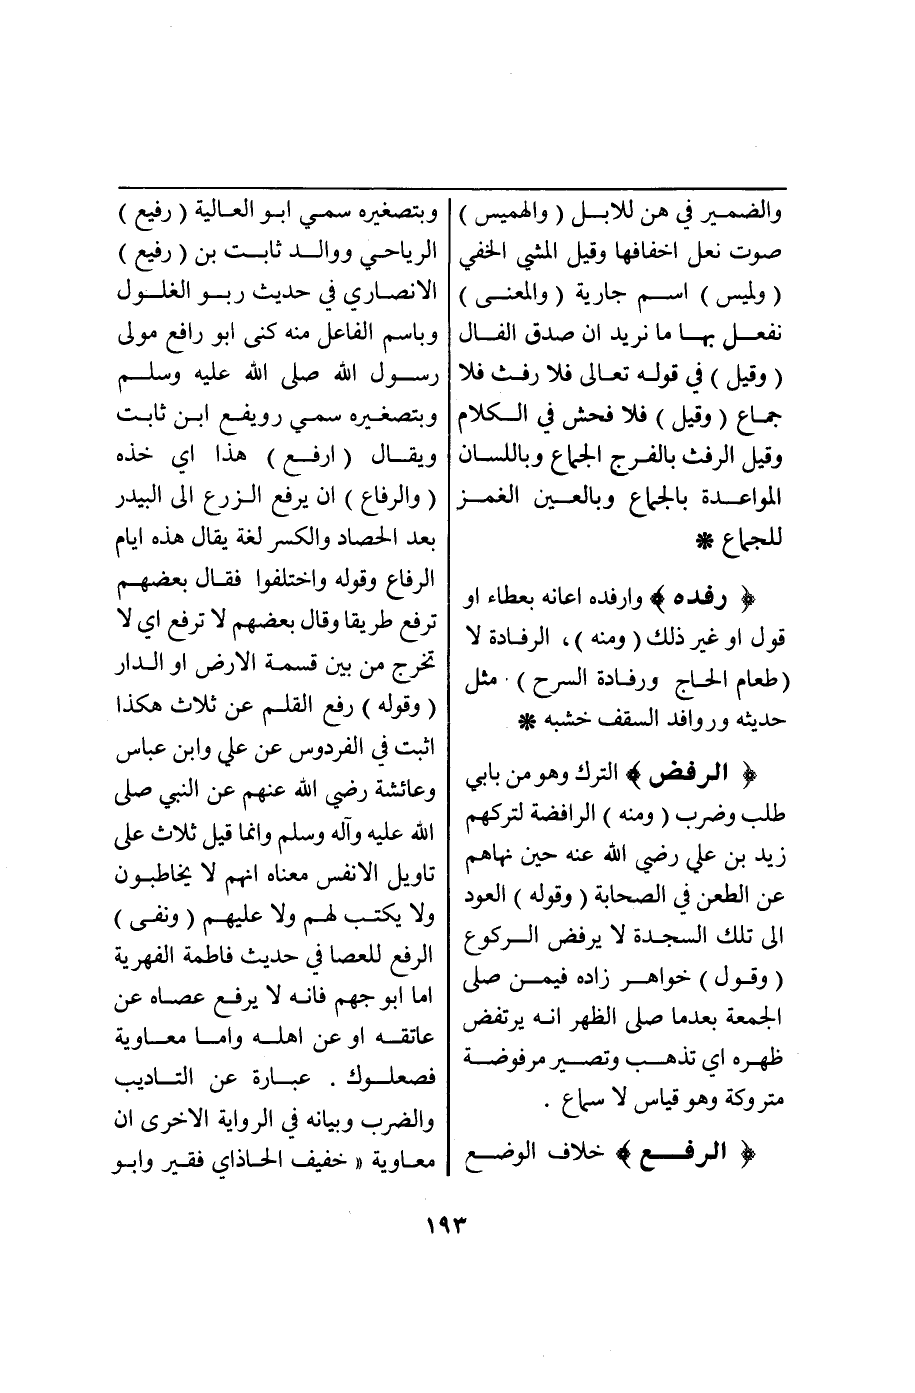 والضمير في هن للابل ( والهميس )
صوت نعل اخفافها وقيل المشي الخفي
( ولميس ) اسم جارية ( والمعنى )
نفعل بها ما نريد ان صدق الفال
( وقيل ) في قوله تعالى فلا رفث فلا
جماع ( وقيل ) فلا فحش في الكلام
وقيل الرفث بالفرج الجماع وباللسان
المواعدة بالجماع وبالعين الغمز
للجماع *
﴿ رفده ﴾ وارفده اعانه بعطاء او
قول او غير ذلك ( ومنه ) ، الرفادة لا
(طعام الحاج ورفادة السرح ) . مثل
حديثه وروافد السقف خشبه *
﴿ الرفض ﴾ الترك وهو من بابي
طلب وضرب ( ومنه ) الرافضة لتركهم
زيد بن علي رضي الله عنه حين نهاهم
عن الطعن في الصحابة ( وقوله ) العود
الى تلك السجدة لا يرفض الركوع
( وقول ) خواهر زاده فيمن صلى
الجمعة بعدما صلى الظهر انه يرتفض
ظهره اي تذهب وتصير مرفوضة
متروكة وهو قياس لا سماع .
﴿ الرفع ﴾ خلاف الوضع
وبتصغيره سمي ابو العالية ( رفيع )
الرياحي ووالد ثابت بن ( رفيع )
الانصاري في حديث ربو الغلول
وباسم الفاعل منه كنى ابو رافع مولى
رسول الله صلى الله عليه وسلم
وبتصغيره سمي رويفع ابن ثابت
ويقال ( ارفع ) هذا اي خذه
( والرفاع ) ان يرفع الزرع الى البيدر
بعد الحصاد والكسر لغة يقال هذه ايام
الرفاع وقوله واختلفوا فقال بعضهم
ترفع طريقا وقال بعضهم لا ترفع اي لا
تخرج من بين قسمة الارض او الدار
( وقوله ) رفع القلم عن ثلاث هكذا
اثبت في الفردوس عن علي وابن عباس
وعائشة رضي الله عنهم عن النبي صلى
الله عليه وآله وسلم وانما قيل ثلاث على
تاويل الانفس معناه انهم لا يخاطبون
ولا يكتب لهم ولا عليهم ( ونفى )
الرفع للعصا في حديث فاطمة الفهرية
اما ابو جهم فانه لا يرفع عصاه عن
عاتقه او عن اهله واما معاوية
فصعلوك . عبارة عن التاديب
والضرب وبيانه في الرواية الاخرى ان
معاوية « خفيف الحاذاي فقير وابو
١٩٣